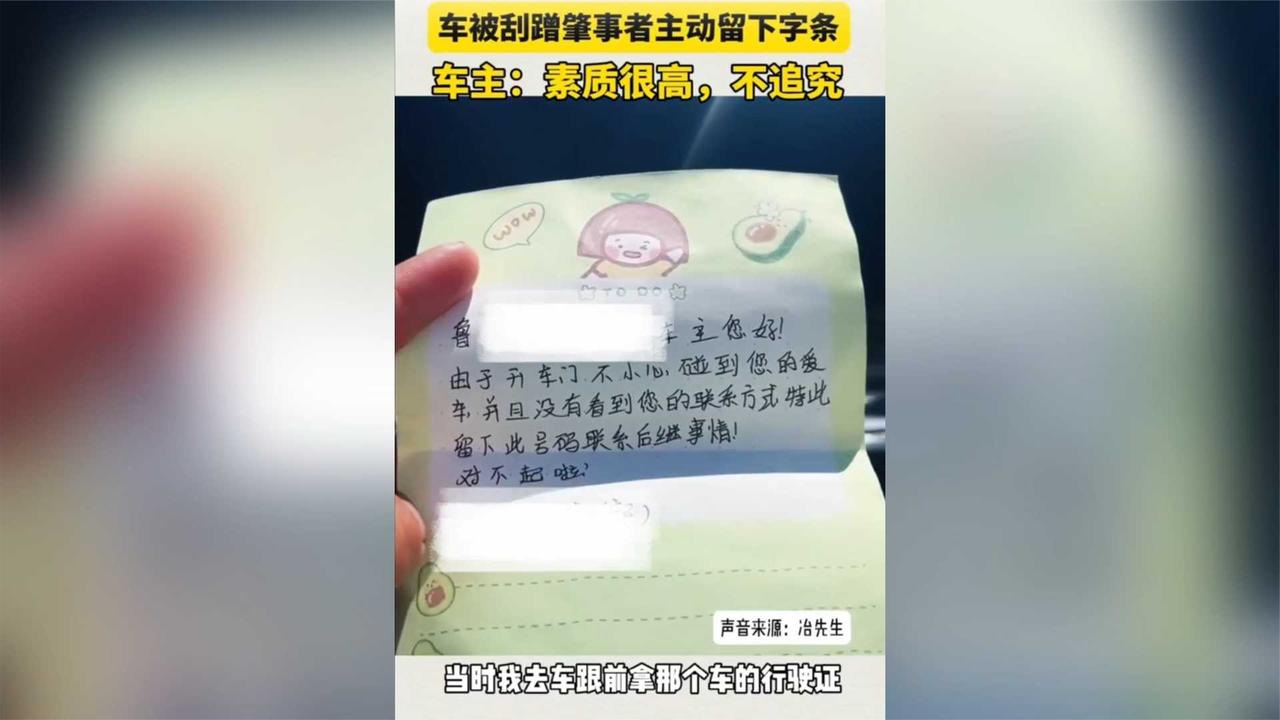 车被刮蹭肇事者主动留下字条
车主：素质很高，不追究
WOW
TO DO
鲁
车主您好!
由于开车门不小心碰到您的爱
车,并且没有看到您的联系方式特此
留下此号码联系后继事情!
对不起啦!
声音来源：冶先生
当时我去车跟前拿那个车的行驶证